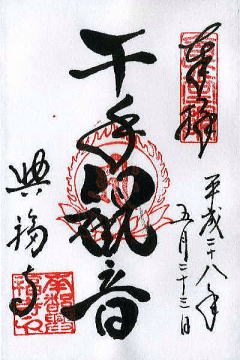 奉拝
平成二十八年
五月二十三日
千手観音
興福寺